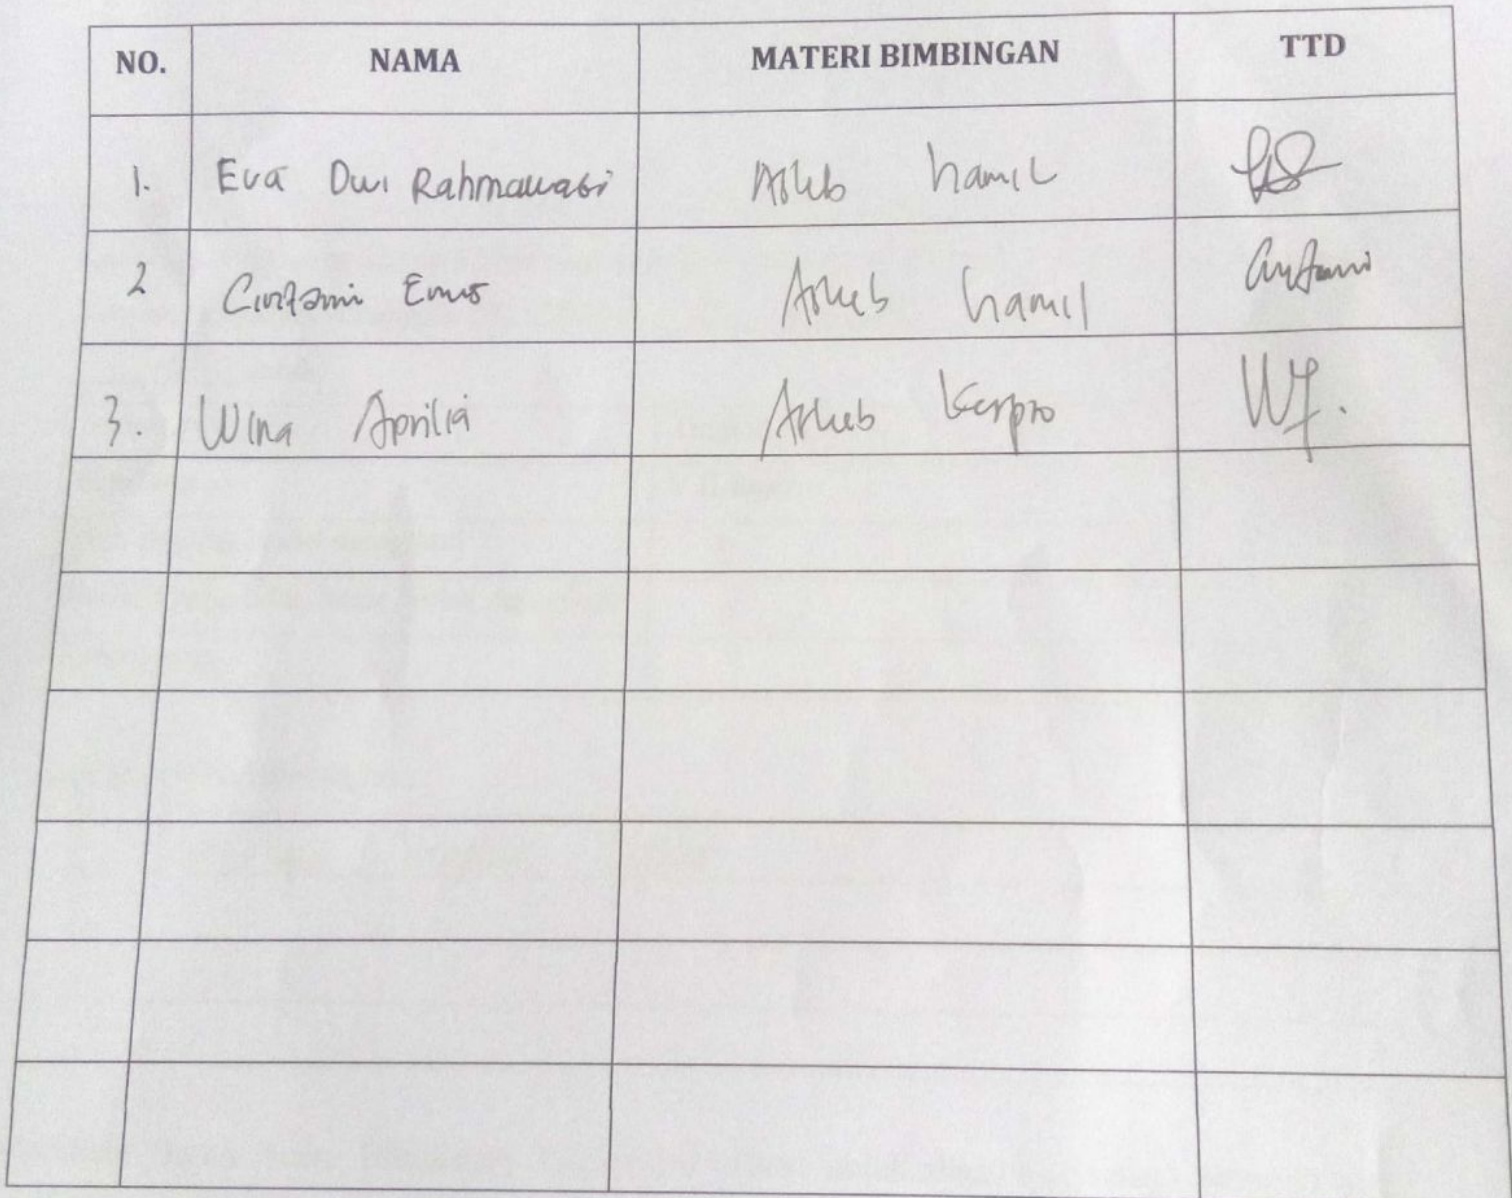 NO. NAMA MATERI BIMBINGAN TTD
1. Eva Dwi Rahmawati Askeb hamil
2 Askeb hamil
3. Wina Aprilia Askeb Kespro